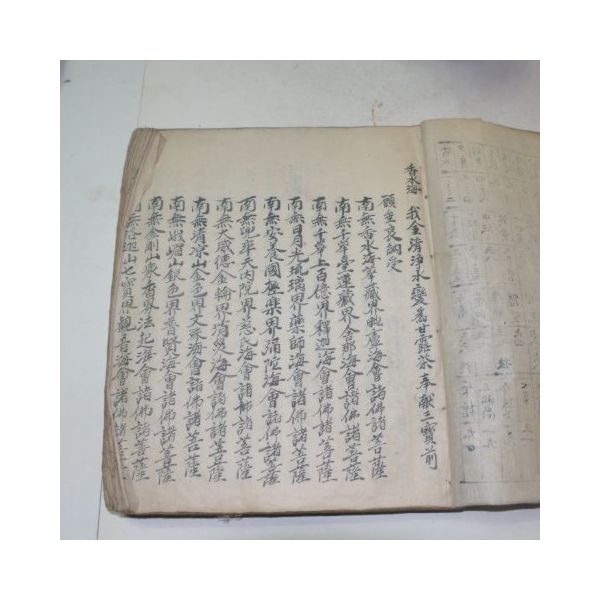 香水海 我今清淨水變爲甘露茶奉獻三寶前
願垂哀納受
南無香水海華藏界毗盧海會諸佛諸菩薩
南無千華臺蓮藏界舍那海會諸佛諸菩薩
南無千華上百億界釋迦海會諸佛諸菩薩
南無日月光琉璃界藥師海會諸佛諸菩薩
南無安養國極樂界彌陀海會諸佛諸菩薩
南無兜率天內院界慈氏海會諸佛諸菩薩
南無大威德金輪界消災海會諸佛諸菩薩
南無淸凉山金色界文殊海會諸佛諸菩薩
南無峨嵋山銀色界普賢海會諸佛諸菩薩
南無金剛山衆香界法起海會諸佛諸菩薩
南無洛迦山七寶界觀音海會諸佛諸菩薩